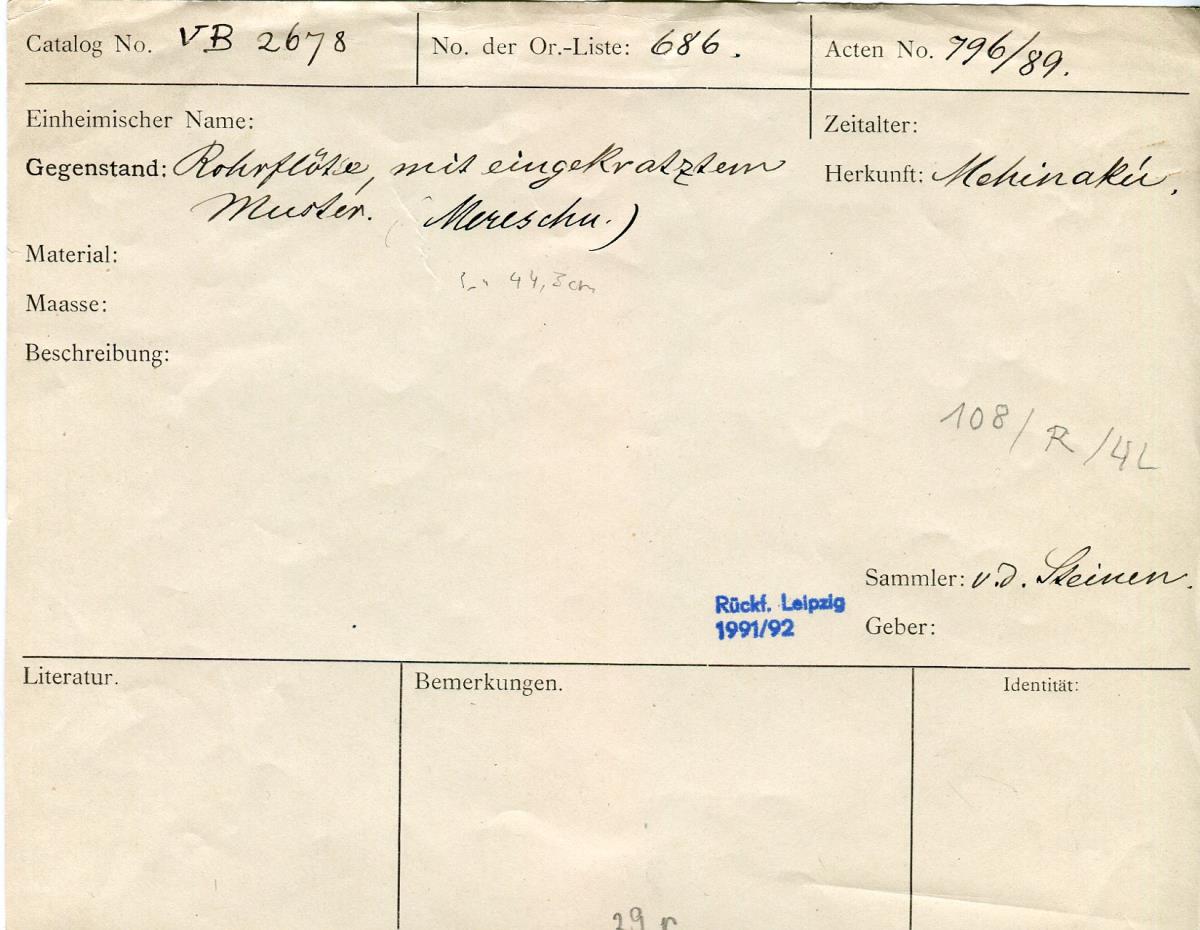 Catalog No. VB 2678
No. der Or.-Liste: 686.
Acten No. 796/89.
Einheimischer Name:
Zeitalter:
Gegenstand: Rohrflöte, mit eingekratztem
Muster. (Mereschu.)
Herkunft: Mehinakú.
Material:
44,3 cm
Maasse:
Beschreibung:
108/R/4L
Sammler: v. d. Steinen.
Rückf. Leipzig
1991/92
Geber:
Literatur.
Bemerkungen.
Identität: